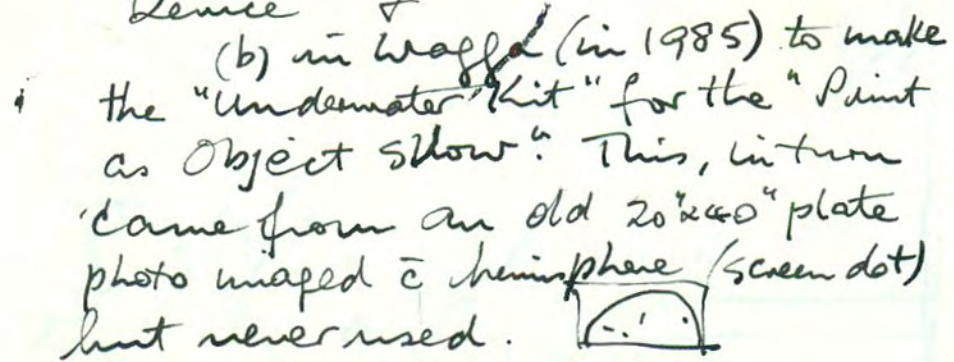 Venice &
(b) in Wagga (in 1985) to make
the "Underwater Kit" for the "Print
as Object Show". This, in turn
came from an old 20"x40" plate
photo imaged c̄ hemisphere (screen dot)
but never used.